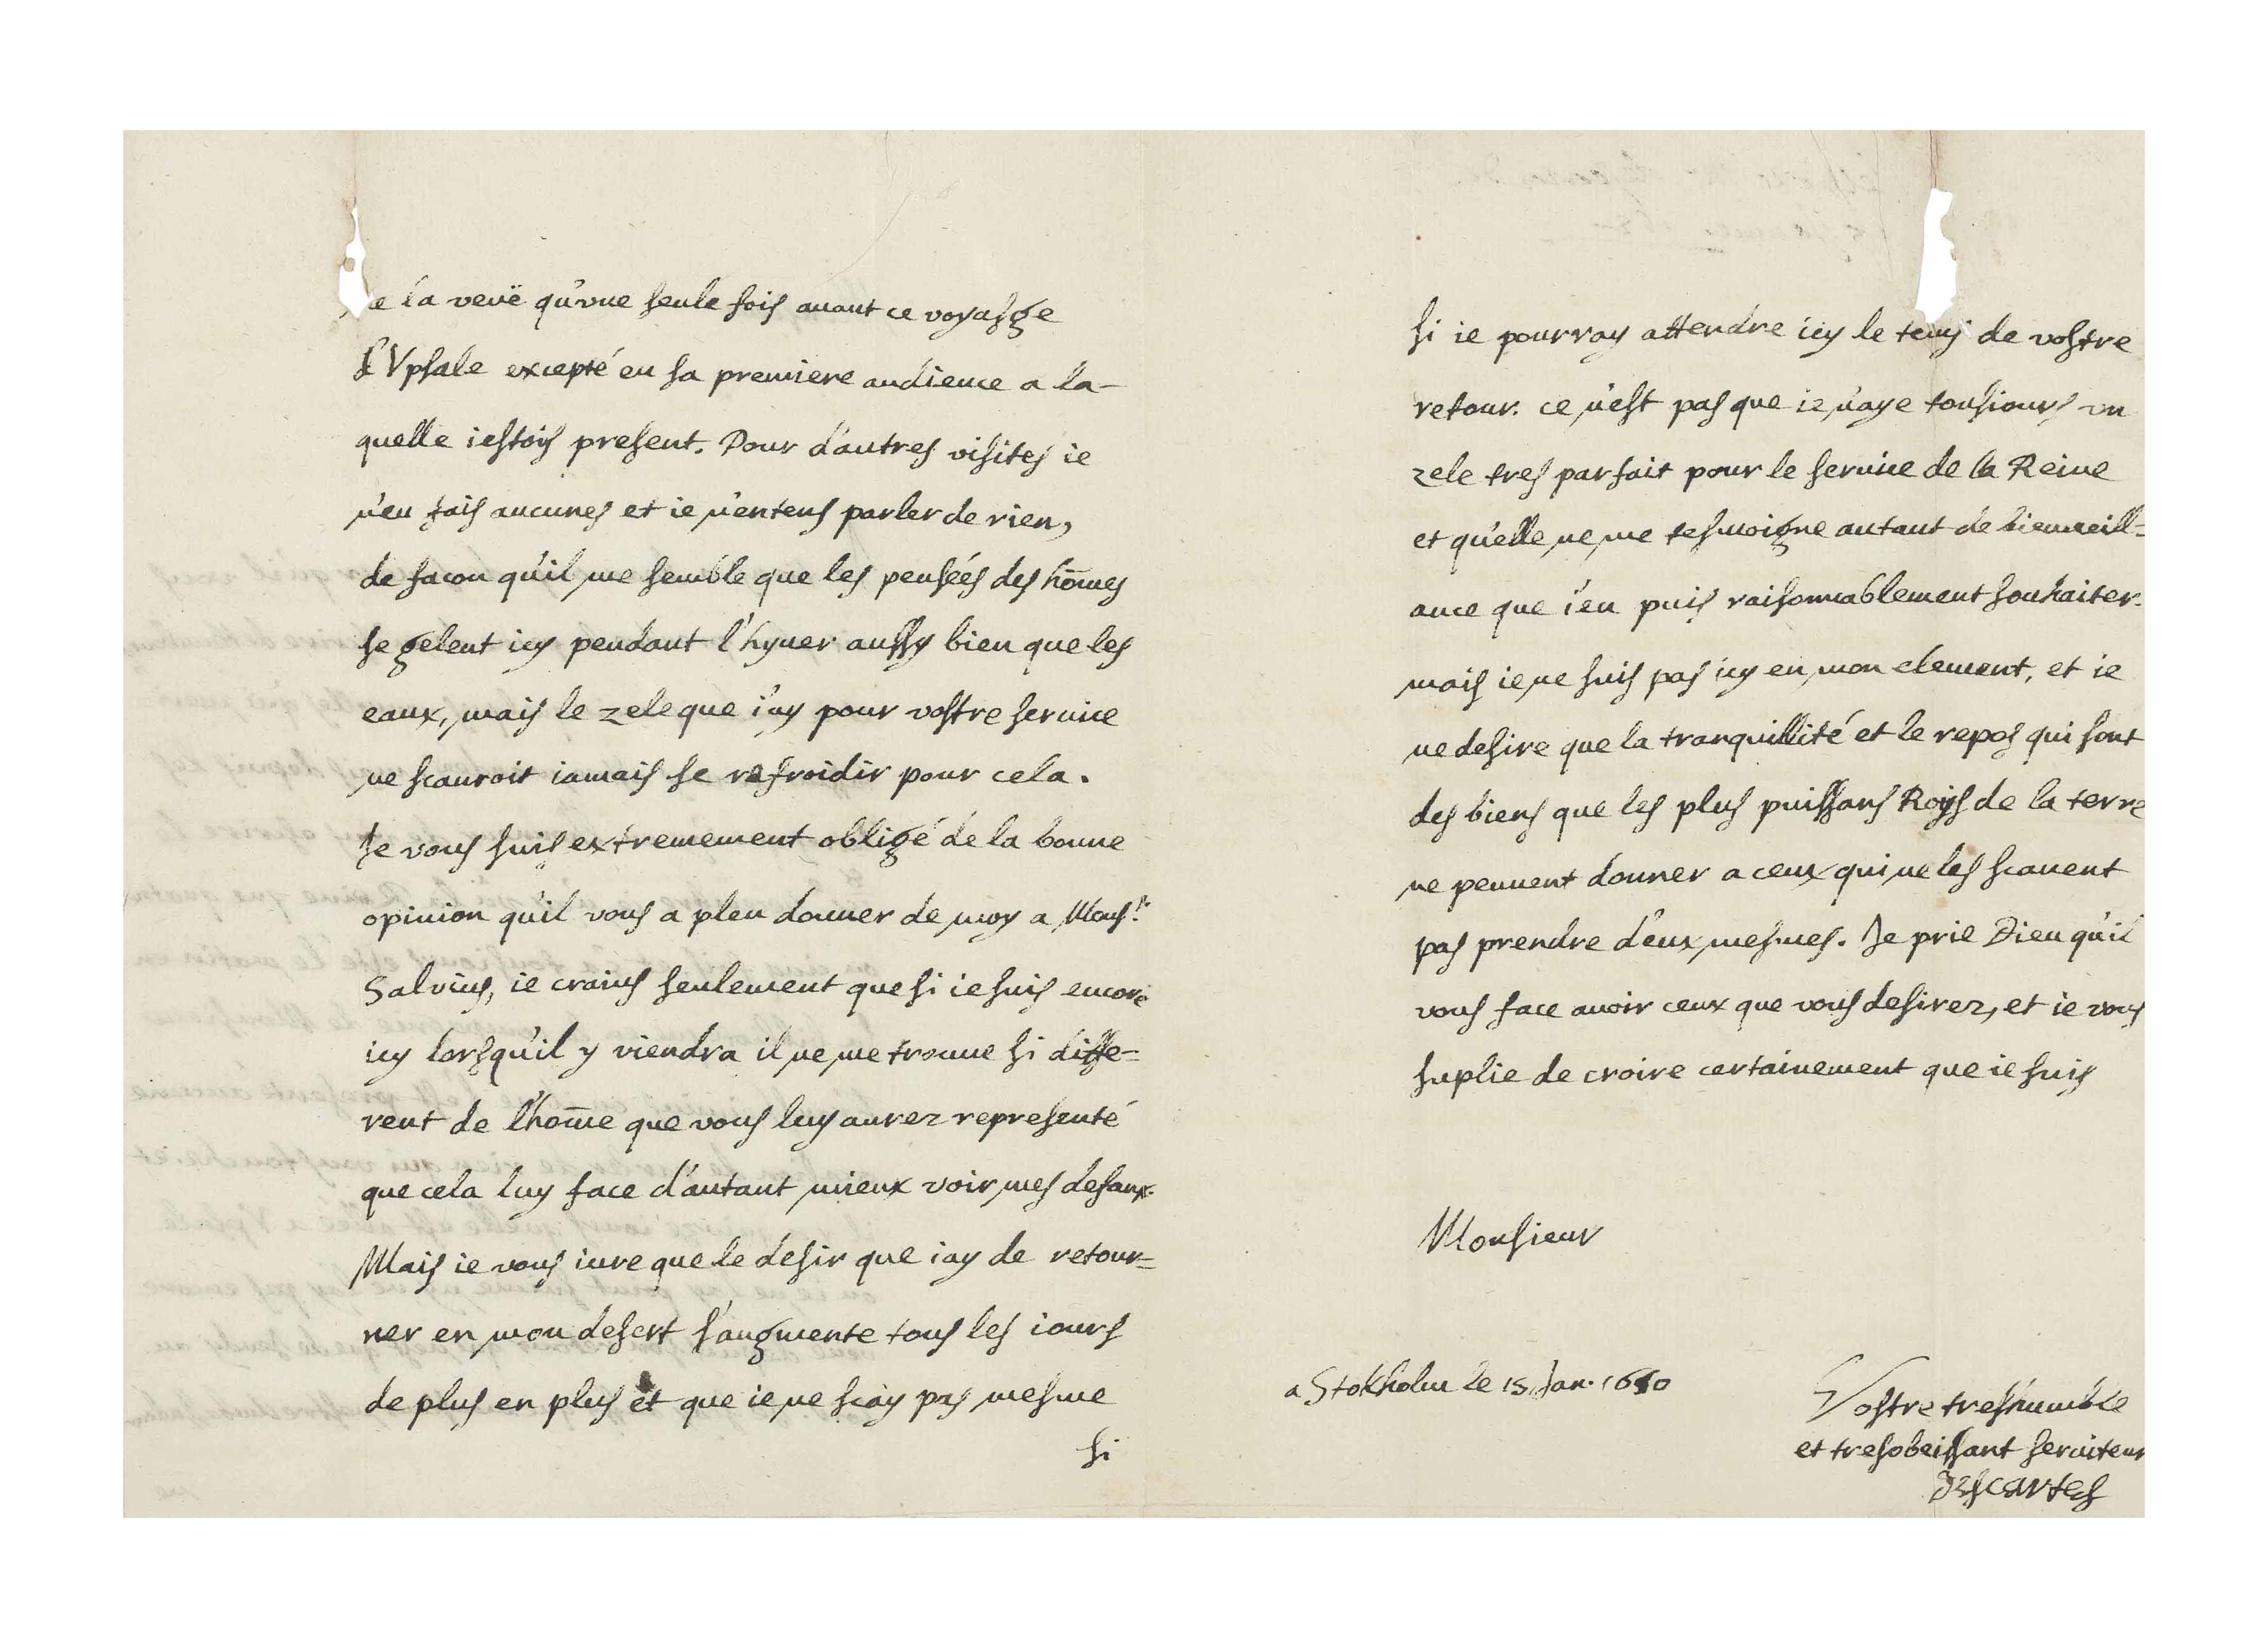 la veuë qu'vne seule fois auant ce voyasge
d'Vpsale excepté en sa premiere audience a la-
quelle iestois present. Pour d'autres visites ie
n'en fais aucunes et ie n'entens parler de rien,
de facon qu'il me semble que les pensées des hōmes
se gelent icy pendant l'hyuer aussy bien que les
eaux, mais le zele que i'ay pour vostre seruice
ne scauroit iamais se refroidir pour cela.
Je vous suis extremement obligé de la bonne
opinion qu'il vous a pleu donner de moy a Monsr.
Salvius, ie crains seulement que si ie suis encore
icy lorsqu'il y viendra il ne me trouue si diffe-
rent de l'hōme que vous luy aurez representé
que cela luy face d'autant mieux voir mes defaux.
Mais ie vous iure que le desir que iay de retour=
ner en mon desert s'augmente tous les iours
de plus en plus et que ie ne scay pas mesme
si
si ie pourray attendre icy le tems de vostre
retour. ce n'est pas que ie n'aye tousiours vn
zele tres parfait pour le seruice de la Reine
et qu'elle ne me tesmoigne autant de bienueill=
ance que i'en puis raisonnablement souhaiter.
mais ie ne suis pas icy en mon element, et ie
ne desire que la tranquillité et le repos qui sont
des biens que les plus puissans Roys de la terre
ne peuuent donner a ceux qui ne les scauent
pas prendre d'eux mesmes. Je prie Dieu qu'il
vous face auoir ceux que vous desirez, et ie vous
suplie de croire certainement que ie suis
Monsieur
a Stokholm le 15 Jan. 1650
Vostre treshumble
et tresobeissant seruiteur
Descartes